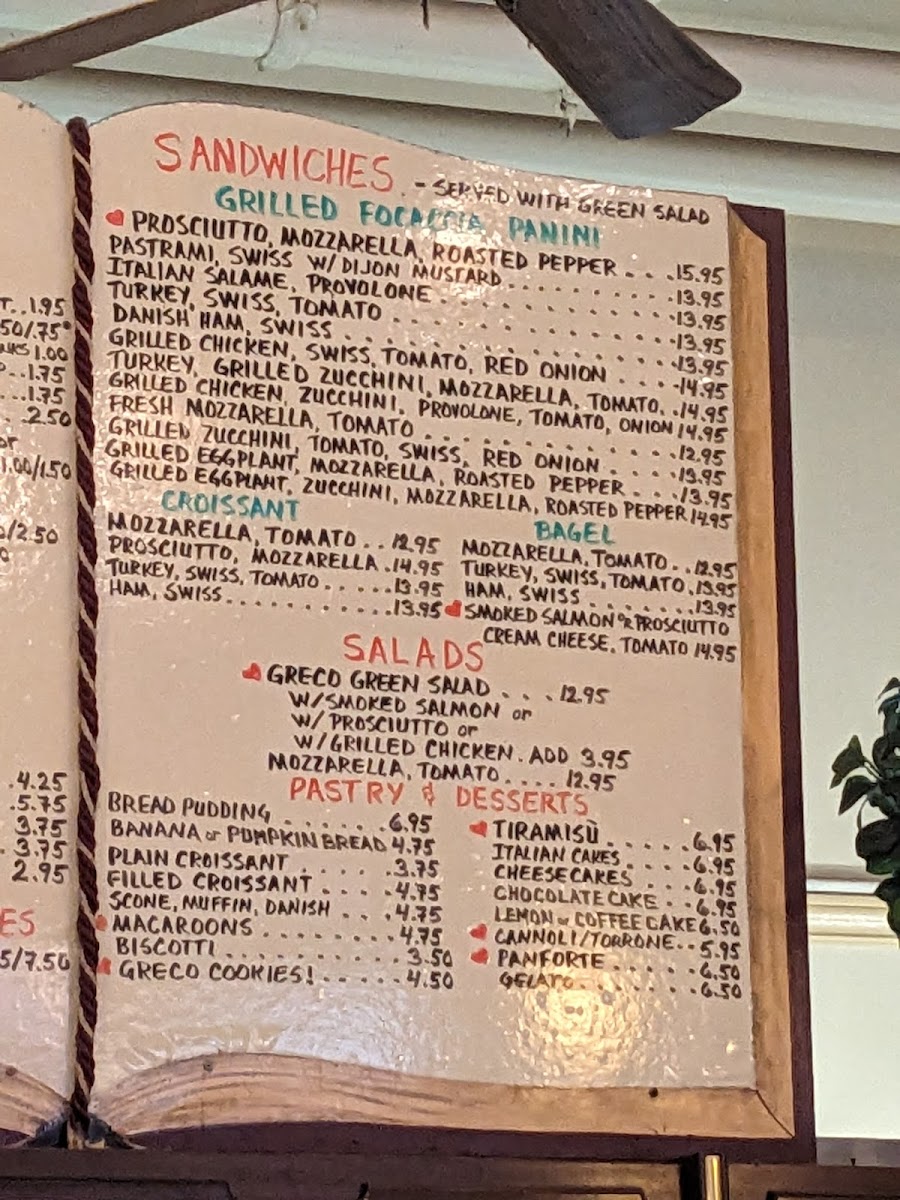 T..1.95
50/.75
1.00
..1.75
...1.75
.2.50
or
1.00/1.50
/2.50
.4.25
.5.75
3.75
. 3.75
2.95
ES
5/7.50
SANDWICHES - SERVED WITH GREEN SALAD
GRILLED FOCACCIA PANINI
PROSCIUTTO, MOZZARELLA, ROASTED PEPPER . . .15.95
PASTRAMI, SWISS W/DIJON MUSTARD . . . . . . . . . .13.95
ITALIAN SALAME, PROVOLONE . . . . . . . . . . . .13.95
TURKEY, SWISS, TOMATO . . . . . . . . . . . . . .13.95
DANISH HAM, SWISS . . . . . . . . . . . . . . . .13.95
GRILLED CHICKEN, SWISS, TOMATO, RED ONION . . . .14.95
TURKEY, GRILLED ZUCCHINI, MOZZARELLA, TOMATO. .14.95
GRILLED CHICKEN, ZUCCHINI, PROVOLONE, TOMATO, ONION 14.95
FRESH MOZZARELLA, TOMATO . . . . . . . . . . . . .12.95
GRILLED ZUCCHINI, TOMATO, SWISS, RED ONION . . . .13.95
GRILLED EGGPLANT, MOZZARELLA, ROASTED PEPPER . . .13.95
GRILLED EGGPLANT, ZUCCHINI, MOZZARELLA, ROASTED PEPPER 14.95
CROISSANT
MOZZARELLA, TOMATO . . 12.95
PROSCIUTTO, MOZZARELLA .14.95
TURKEY, SWISS, TOMATO . . . . .13.95
HAM, SWISS. . . . . . . . . . .13.95
BAGEL
MOZZARELLA, TOMATO . . 12.95
TURKEY, SWISS, TOMATO .13.95
HAM, SWISS . . . . . . . .13.95
SMOKED SALMON or PROSCIUTTO
CREAM CHEESE, TOMATO 14.95
SALADS
GRECO GREEN SALAD . . . .12.95
W/SMOKED SALMON or
W/ PROSCIUTTO or
W/GRILLED CHICKEN . ADD 3.95
MOZZARELLA, TOMATO . . . . . 12.95
PASTRY & DESSERTS
BREAD PUDDING . . . . . . .6.95
BANANA or PUMPKIN BREAD 4.75
PLAIN CROISSANT . . . . .3.75
FILLED CROISSANT . . . . .4.75
SCONE, MUFFIN, DANISH . . . .4.75
MACAROONS . . . . . . . . .4.75
BISCOTTI . . . . . . . . . . . 3.50
GRECO COOKIES! . . . . . . 4.50
TIRAMISÙ . . . . . .6.95
ITALIAN CAKES . . . .6.95
CHEESECAKES . . . .6.95
CHOCOLATE CAKE . . .6.95
LEMON or COFFEE CAKE 6.50
CANNOLI/TORRONE . . 5.95
PANFORTE . . . . . .6.50
GELATO . . . . . . . .6.50